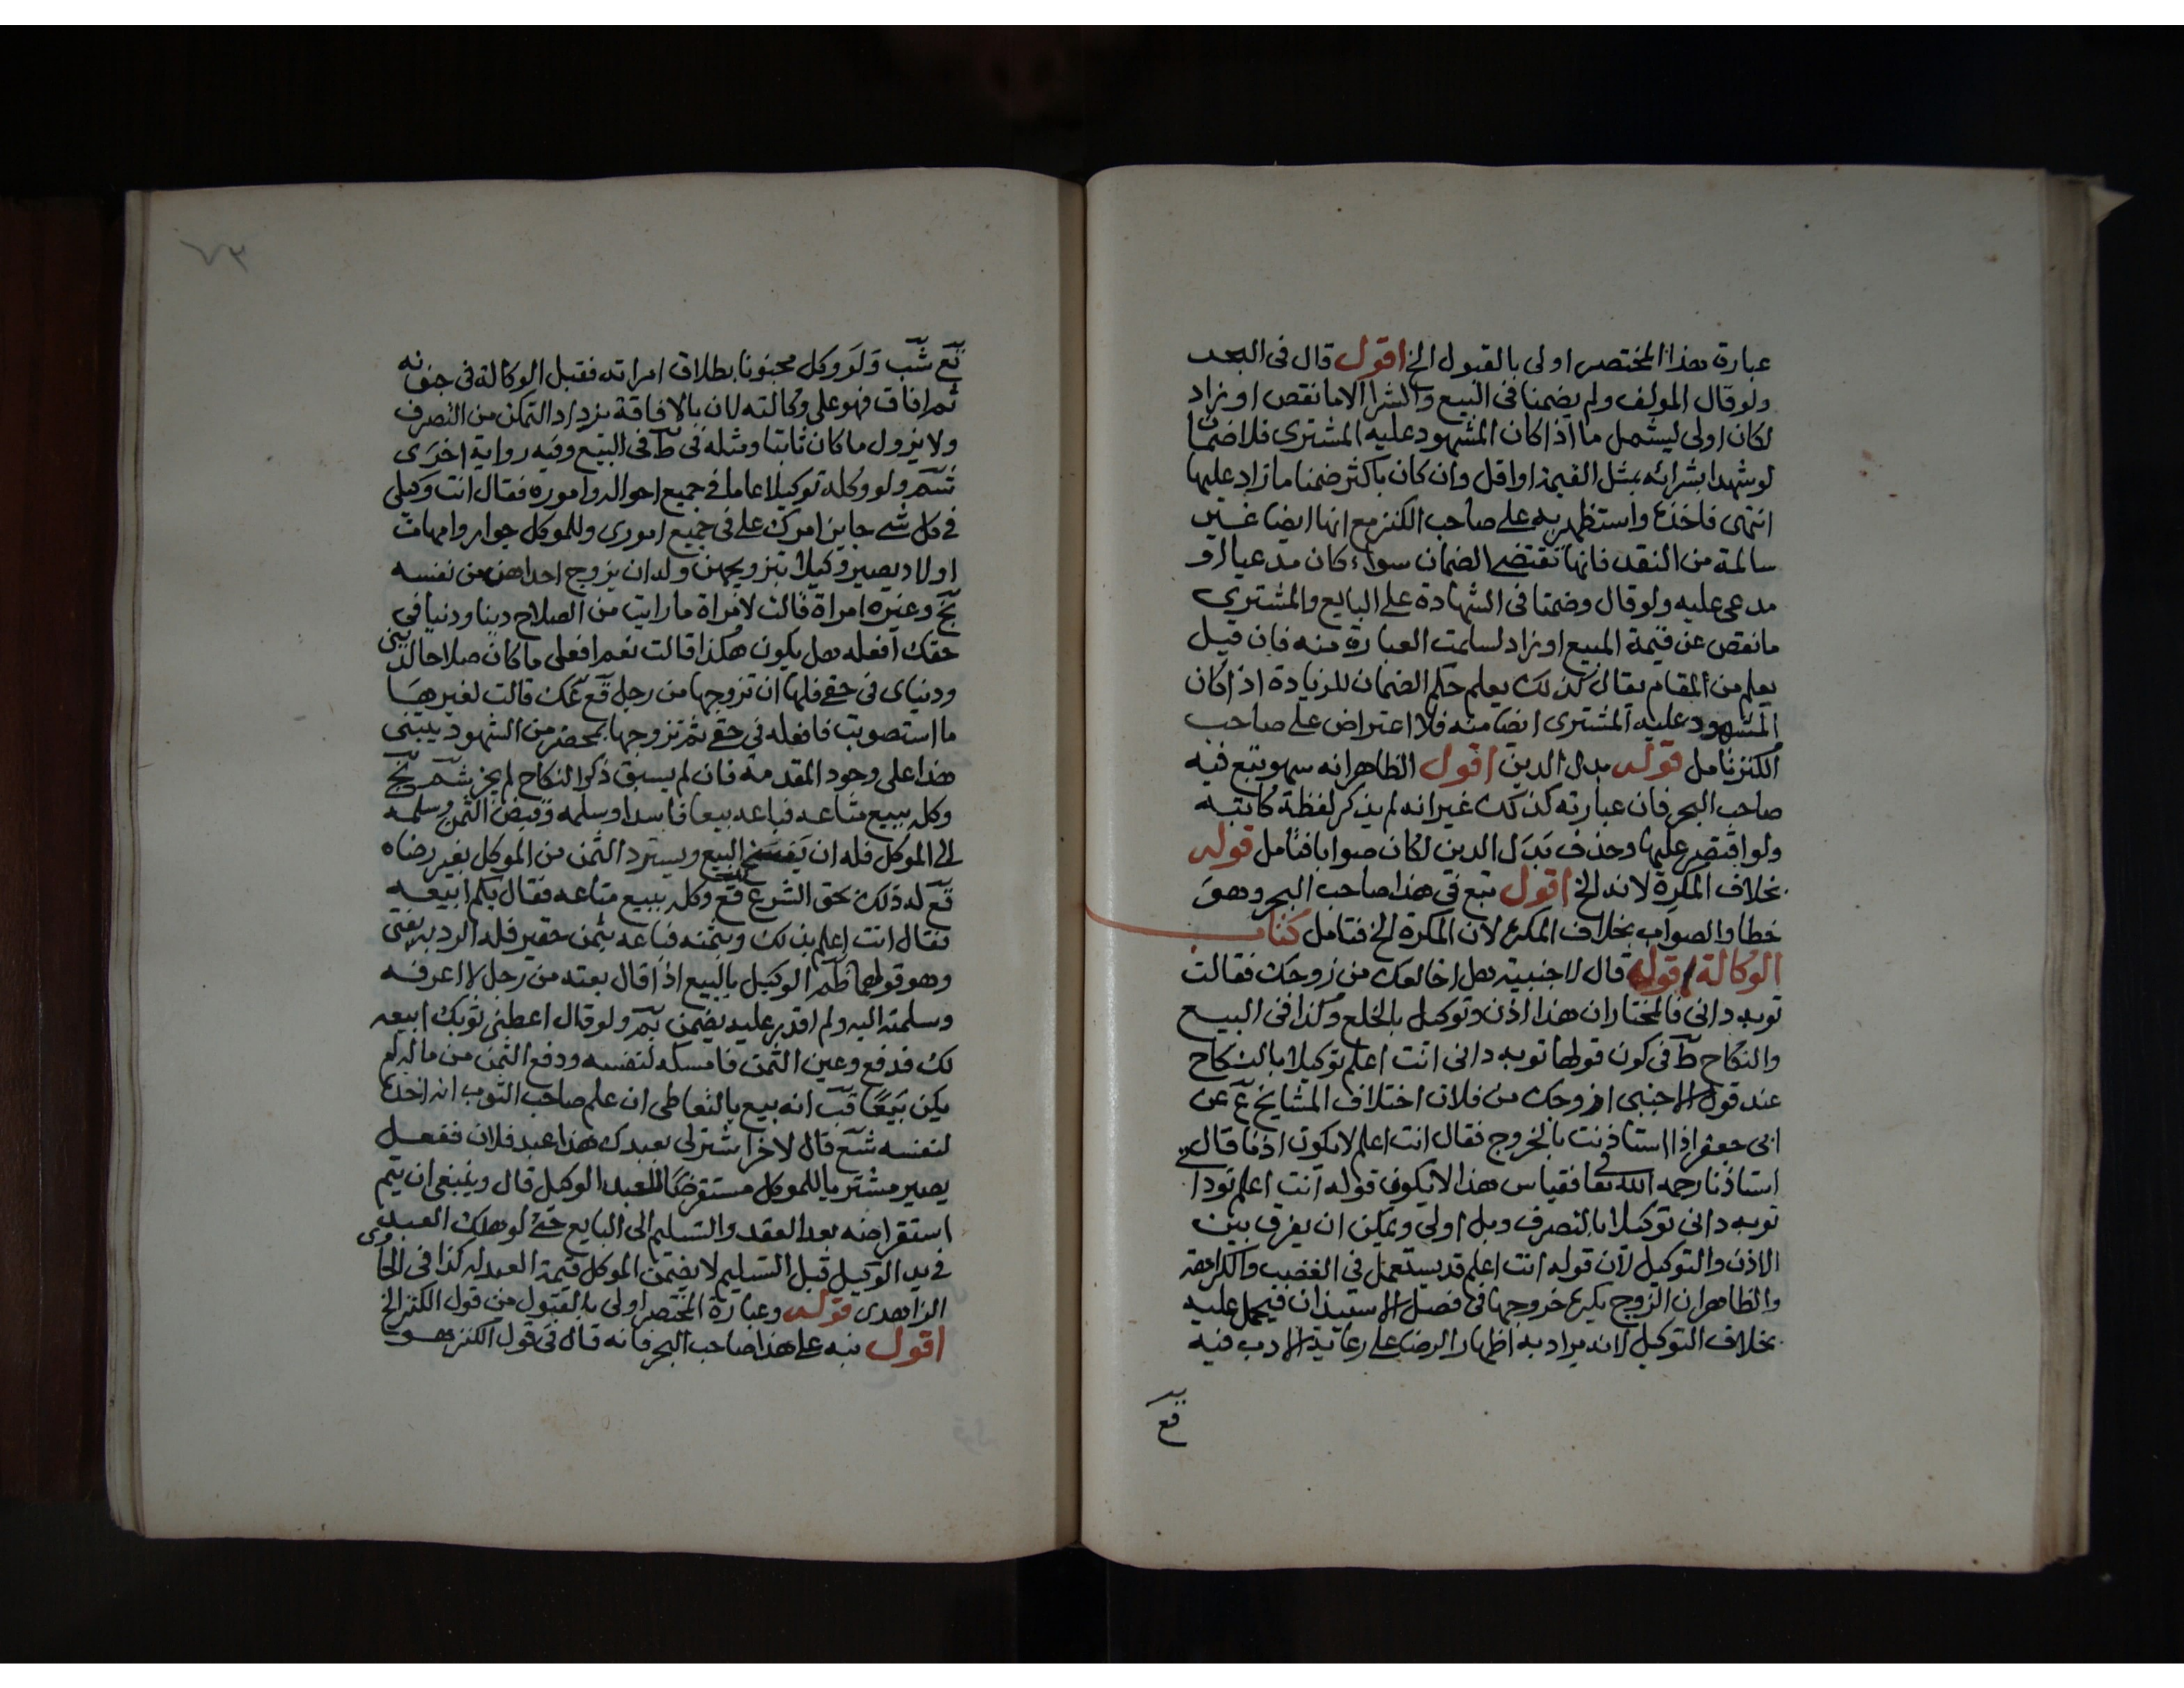 عبارة هذا المختصر اولى بالقبول الخ اقول قال فى البحر
ولو قال المولف ولم يضمنا فى البيع والشرا الا ما نقص او زاد
لكان اولى ليشمل ما اذا كان المشهود عليه المشترى فلا ضمان
لو شهدا بشرائه بمثل القيمة او اقل وان كان باكثر ضمنا ما زاد عليها
انتهى فاخذه واستظهر به على صاحب الكنز مع انها ايضا غير
سالمة من النقد فانها تقتضى الضمان سواء كان مدعيا او
مدعى عليه ولو قال وضمنا فى الشهادة على البايع والمشترى
ما نقص عن قيمة المبيع او زاد لسلمت العبارة منه فان قيل
يعلم من المقام يقال كذلك يعلم حكم الضمان للزيادة اذا كان
المشهود عليه المشترى ايضا منه فلا اعتراض على صاحب
الكنز تامل قوله بدل الدين اقول الظاهر انه سهو تبع فيه
صاحب البحر فان عبارته كذلك غير انه لم يذكر لفظة كاتبه
ولو اقتصر عليها وحذف بدل الدين لكان صوابا فتامل قوله
بخلاف المكره لانه الخ اقول تبع فى هذا صاحب البحر وهو
خطا والصواب بخلاف المكره لان المكره الخ فتامل كتاب
الوكالة قوله قال لاجنبية هل اخالعك من زوجك فقالت
توبه دانى فالمختار ان هذا اذن وتوكيل بالخلع وكذا فى البيع
والنكاح ط فى كون قولها توبه دانى انت اعلم توكيلا بالنكاح
عند قول الاجنبى ازوجك من فلان اختلاف المشايخ ع عن
ابى جعفر اذا استاذنت بالخروج فقال انت اعلم لا يكون اذنا قال
استاذنا رحمه الله تعا فقياس هذا لا يكون قوله انت اعلم تودا
توبه دانى توكيلا بالتصرف وبل اولى ويمكن ان يفرق بين
الاذن والتوكيل لان قوله انت اعلم قد يستعمل فى الغضب والكراهة
والظاهر ان الزوج يكره خروجها فى فصل الاستيذان فيحمل عليه
بخلاف التوكيل لانه يراد به اظهار الرضا على رعاية الادب فيه
قع
قع شب ولو وكل مجنونا بطلاق امراته فقبل الوكالة فى جنونه
ثم افاق فهو على وكالته لان بالافاقة يزداد التمكن من التصرف
ولا يزول ما كان ثابتا ومثله فى ط فى البيع وفيه رواية اخرى
ولو وكله توكيلا عاما فى جميع احواله واموره فقال انت وكيلى
فى كل شى جايز امرك على فى جميع امورى وللموكل جوار وامهات
اولاد يصير وكيلا بتزويجهن وله ان يزوج احداهن من نفسه
بخ وغيره امراة قالت لامراة ما رايت من الصلاح دينا ودنيا فى
حقك افعله هل يكون هكذا قالت نعم افعلى ما كان صلاحا لدينى
ودنياى فى حقى فلها ان تزوجها من رجل قع عك قالت لغيرها
ما استصوبت فافعله فى حقى ثم تزوجها بمحضر من الشهود يبتنى
هذا على وجود المقدمة فان لم يسبق ذكر النكاح لم يجز شم بخ
وكله ببيع متاعه فباعه بيعا فاسدا وسلمه وقبض الثمن وسلمه
الى الموكل فله ان يفسخ البيع ويسترد الثمن من الموكل بغير رضاه
قع له ذلك بحق الشرع قع وكله ببيع متاعه فقال بكم ابيعه
فقال انت اعلم بذلك وبثمنه فباعه بثمن حقير فله الرد به يفتى
وهو قولهما الوكيل بالبيع اذا قال بعته من رجل لا اعرفه
وسلمته اليه ولم اقدر عليه يضمن بم ولو قال اعطنى ثوبك ابيعه
لك فدفع وعين الثمن فامسكه لنفسه ودفع الثمن من ماله لم
يكن بيعا قب انه بيع بالتعاطى ان علم صاحب الثوب انه اخذه
لنفسه شع قال لاخر اشتر لى بعبدك هذا عبد فلان ففعل
يصير مشتريا للموكل مستقرضا لعبد الوكيل قال وينبغى ان يتم
استقراضه بعد العقد والتسليم الى البايع حتى لو هلك العبد
فى يد الوكيل قبل التسليم لا يضمن الموكل قيمة العبد له كذا فى الحاوى
الزاهدى قوله وعبارة المختصر اولى بالقبول من قول الكنز الخ
اقول نبه على هذا صاحب البحر فانه قال فى قول الكنز هو